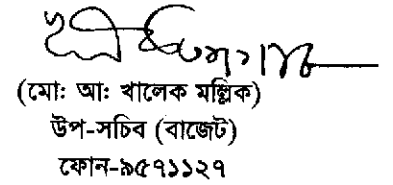 (মোঃ আঃ খালেক মল্লিক)
উপ-সচিব (বাজেট)
ফোন-৯৫৭১১২৭